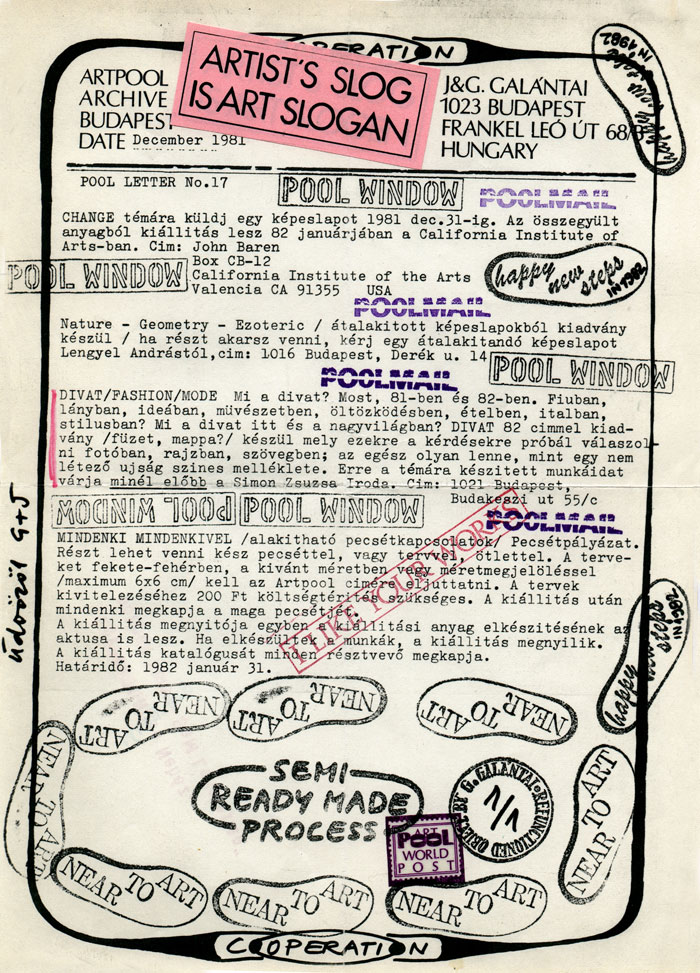 COOPERATION
ARTIST'S SLOG
IS ART SLOGAN
ARTPOOL
ARCHIVE
BUDAPEST
DATE December 1981
J&G. GALÁNTAI
1023 BUDAPEST
FRANKEL LEÓ ÚT 68/
HUNGARY
happy new steps
IN 1982
POOL LETTER No.17
POOL WINDOW
POOLMAIL
CHANGE témára küldj egy képeslapot 1981 dec.31-ig. Az összegyült
anyagból kiállitás lesz 82 januárjában a California Institute of
Arts-ban. Cim: John Baren
Box CB-12
POOL WINDOW
California Institute of the Arts
Valencia CA 91355 USA
happy new steps
IN 1982
POOLMAIL
Nature - Geometry - Ezoteric / átalakitott képeslapokból kiadvány
készül / ha részt akarsz venni, kérj egy átalakitandó képeslapot
Lengyel Andrástól,cim: 1016 Budapest, Derék u. 14
POOL WINDOW
POOLMAIL
DIVAT/FASHION/MODE Mi a divat? Most, 81-ben és 82-ben. Fiuban,
lányban, ideában, müvészetben, öltözködésben, ételben, italban,
stilusban? Mi a divat itt és a nagyvilágban? DIVAT 82 cimmel kiad-
vány /füzet, mappa?/ készül mely ezekre a kérdésekre próbál válaszol-
ni fotóban, rajzban, szövegben; az egész olyan lenne, mint egy nem
létező ujság szines melléklete. Erre a témára készitett munkáidat
várja minél előbb a Simon Zsuzsa Iroda. Cim: 1021 Budapest,
Budakeszi ut 55/c
POOL WINDOW
POOL WINDOW
POOLMAIL
MINDENKI MINDENKIVEL /alakitható pecsétkapcsolatok/ Pecsétpályázat.
Részt lehet venni kész pecséttel, vagy tervvel, ötlettel. A terve-
ket fekete-fehérben, a kivánt méretben vagy méretmegjelöléssel
/maximum 6x6 cm/ kell az Artpool cimére eljuttatni. A tervek
kivitelezéséhez 200 Ft költségtérités szükséges. A kiállitás után
mindenki megkapja a maga pecsétjét.
A kiállitás megnyitója egyben a kiállitási anyag elkészitésének az
aktusa is lesz. Ha elkészültek a munkák, a kiállitás megnyilik.
A kiállitás katalógusát minden résztvevő megkapja.
Határidő: 1982 január 31.
I LIKE YOUR WORKS
üdvözöl G+J
happy new steps
IN 1982
NEAR TO ART
NEAR TO ART
NEAR TO ART
NEAR TO ART
SEMI
READY MADE
PROCESS
REFUNCTIONED OBJECT BY G. GALÁNTAI
1/1
ART
POOL
WORLD
POST
NEAR TO ART
NEAR TO ART
NEAR TO ART
NEAR TO ART
COOPERATION